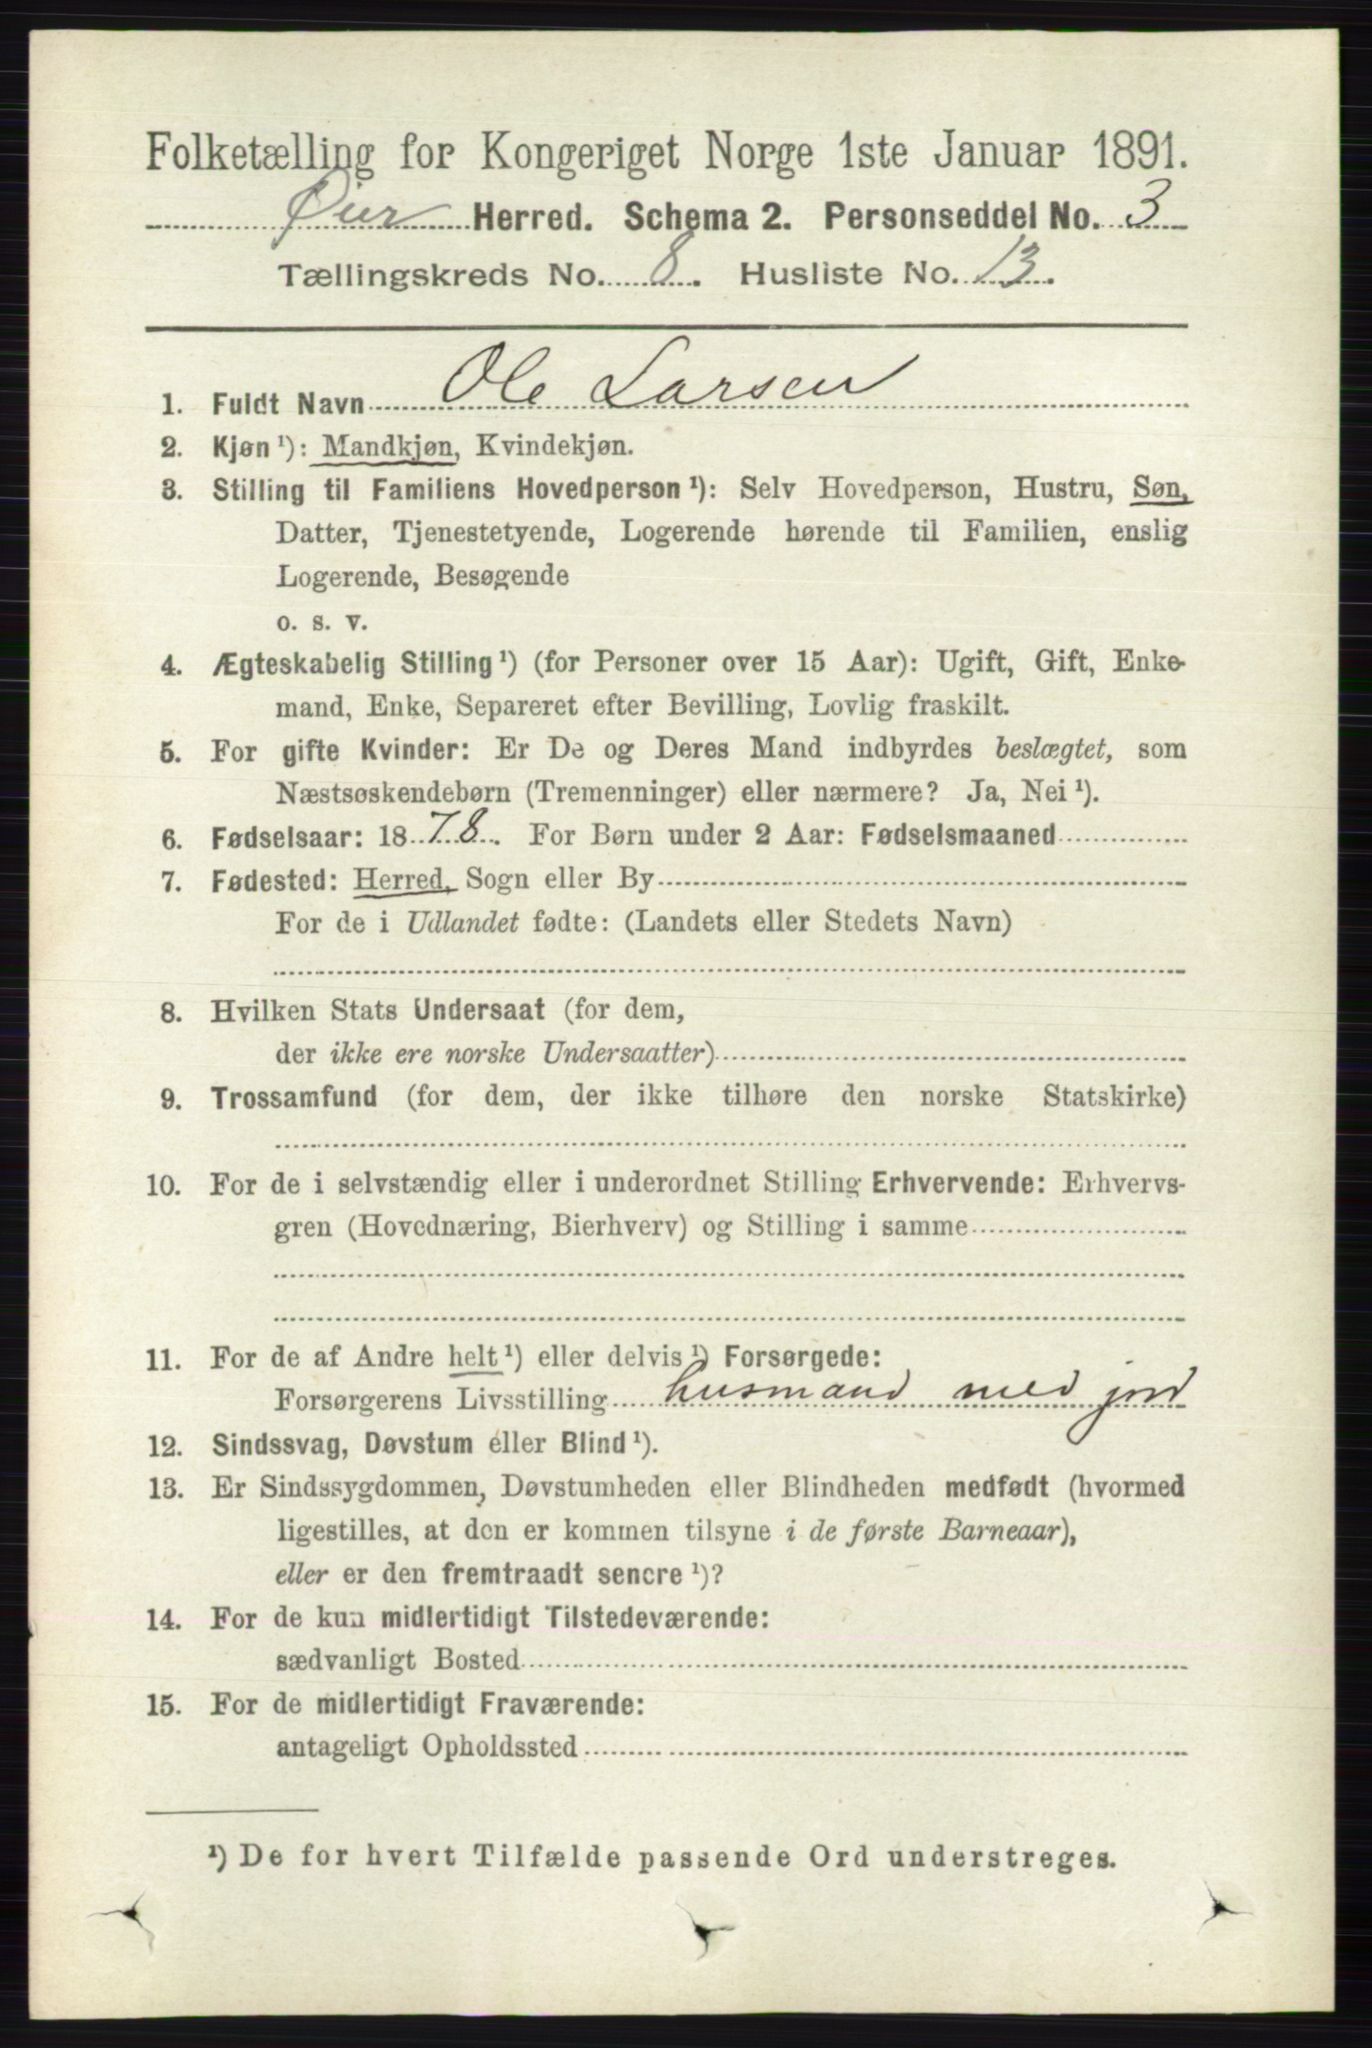 Folketælling for Kongeriget Norge 1ste Januar 1891.
Øier Herred. Schema 2. Personseddel No. 3
Tællingskreds No. 8. Husliste No. 13.
1. Fuldt Navn Ole Larsen
2. Kjøn¹): Mandkjøn, Kvindekjøn.
3. Stilling til Familiens Hovedperson¹): Selv Hovedperson, Hustru, Søn,
Datter, Tjenestetyende, Logerende hørende til Familien, enslig
Logerende, Besøgende
o. s. v.
4. Ægteskabelig Stilling¹) (for Personer over 15 Aar): Ugift, Gift, Enke-
mand, Enke, Separeret efter Bevilling, Lovlig fraskilt.
5. For gifte Kvinder: Er De og Deres Mand indbyrdes beslægtet, som
Næstsøskendebørn (Tremenninger) eller nærmere? Ja, Nei¹).
6. Fødselsaar: 1878. For Børn under 2 Aar: Fødselsmaaned
7. Fødested: Herred, Sogn eller By
For de i Udlandet fødte: (Landets eller Stedets Navn)
8. Hvilken Stats Undersaat (for dem,
der ikke ere norske Undersaatter)
9. Trossamfund (for dem, der ikke tilhøre den norske Statskirke)
10. For de i selvstændig eller i underordnet Stilling Erhvervende: Erhvervs-
gren (Hovednæring, Bierhverv) og Stilling i samme
11. For de af Andre helt¹) eller delvis¹) Forsørgede:
Forsørgerens Livsstilling husmand med jord
12. Sindssvag, Døvstum eller Blind¹).
13. Er Sindssygdommen, Døvstumheden eller Blindheden medfødt (hvormed
ligestilles, at den er kommen tilsyne i de første Barneaar),
eller er den fremtraadt senere¹)?
14. For de kun midlertidigt Tilstedeværende:
sædvanligt Bosted
15. For de midlertidigt Fraværende:
antageligt Opholdssted
¹) De for hvert Tilfælde passende Ord understreges.